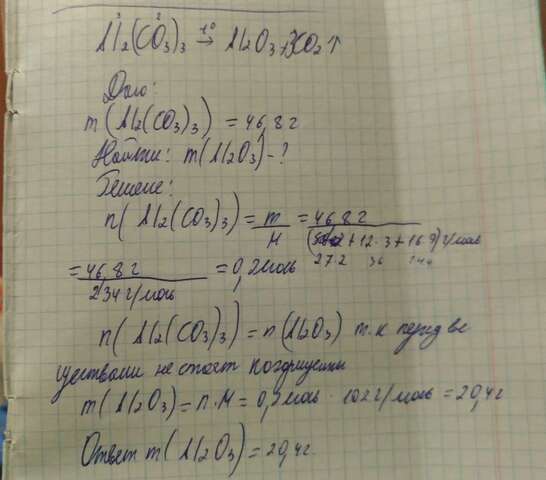 Al₂(CO₃)₃ t° → Al₂O₃ + 3CO₂↑
Дано:
m(Al₂(CO₃)₃) = 46,8 г
Найти: m(Al₂O₃) - ?
Решение:
n(Al₂(CO₃)₃) = m/M = 46,8 г / (+ 12·3 + 16·9) г/моль
27·2 36 144
= 46,8 г / 234 г/моль = 0,2 моль
n(Al₂(CO₃)₃) = n(Al₂O₃) т.к перед ве
ществами не стоят коэфициенты
m(Al₂O₃) = n·M = 0,2 моль · 102 г/моль = 20,4 г
Ответ m(Al₂O₃) = 20,4 г.